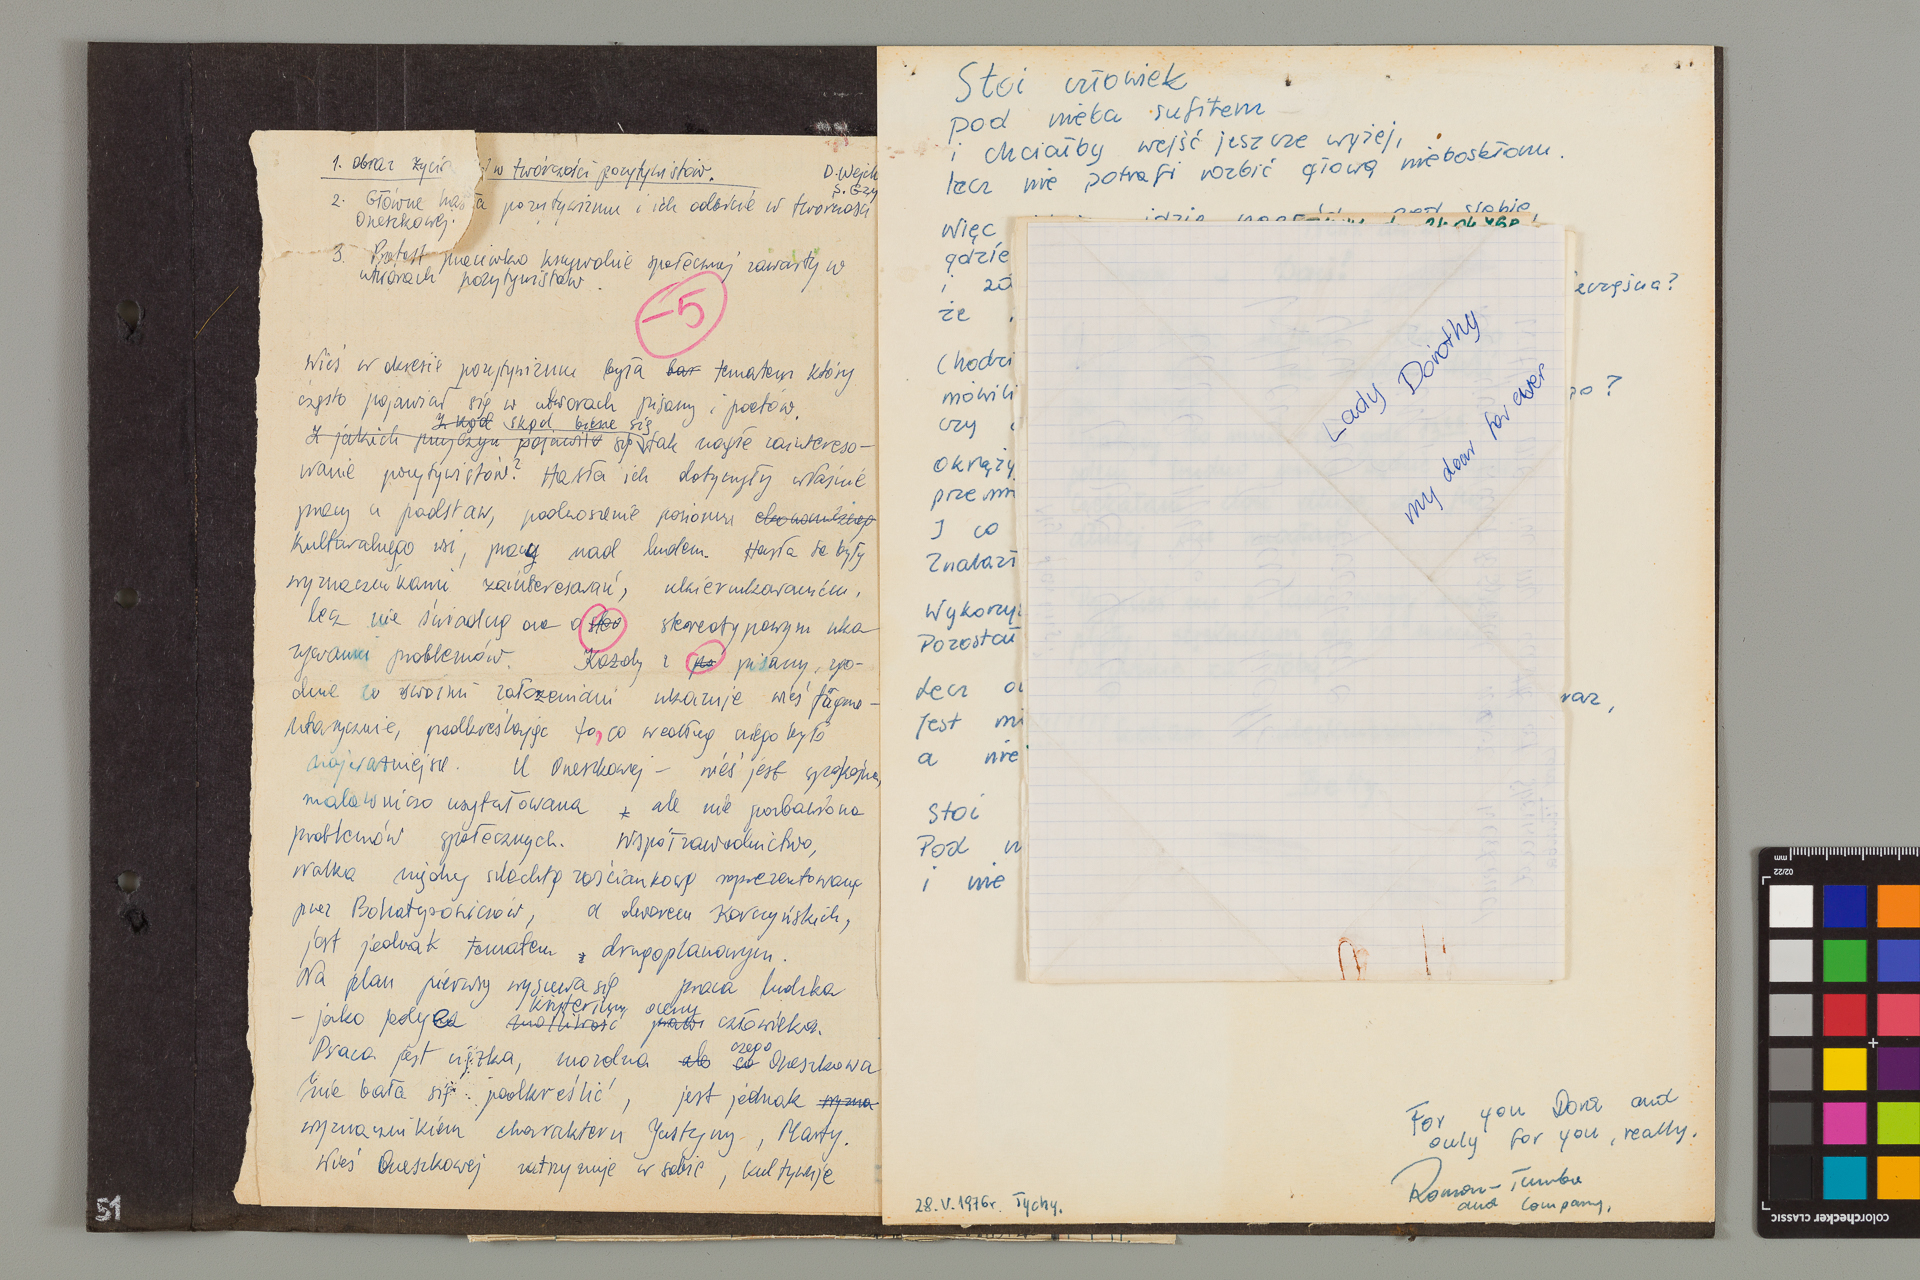 1. Obraz życia w twórczości pozytywistów.
D. Wejch
2. Główne hasła pozytywizmu i ich odbicie w twórczości
Orzeszkowej.
3. Protest przeciwko krzywdzie społecznej zawarty w
utworach pozytywistów.
-5
Wieś w okresie pozytywizmu była bar tematem który
często pojawiał się w utworach pisarzy i poetów.
Z kąd skąd bierze się
Z jakich przyczyn pojawiło się tak nagłe zaintereso-
wanie pozytywistów? Hasła ich dotyczyły właśnie
pracy u podstaw, podnoszenie poziomu ekonomicznego
kulturalnego wsi, pracy nad ludem. Hasła te były
wyznacznikami zainteresowań, ukierunkowaniem,
lecz nie świadczą one o ste stereotypowym uka
zywaniu problemów. Każdy z po pisarzy, zgo-
dnie ze swoimi założeniami ukazuje wieś fragme-
ntarycznie, podkreślając to, co według niego było
najważniejsze. U Orzeszkowej - wieś jest spokojna,
malowniczo usytułowana ale nie pozbawiona
problemów społecznych. Współzawodnictwo,
walka między szlachtą zaściankową reprezentowaną
przez Bohatyrowiczów, a dworem Korczyńskich,
jest jednak tematem drugoplanowym.
Na plan pierwszy wysuwa się praca ludzka
kryterium oceny
- jako człowieka.
czego
Praca jest ciężka, mozolna ale co Orzeszkowa
nie bała się podkreślić, jest jednak wyzna
wyznacznikiem charakteru Justyny, Marty.
Wieś Orzeszkowej zatrzymuje w sobie, kultywuje
51
Stoi człowiek
pod nieba sufitem
i chciałby wejść jeszcze wyżej,
lecz nie potrafi rozbić głową nieboskłonu.
Więc idzie
gdzie
i
że
Chodzi
mówili
czy
przemi
I co
Wykorzy
Pozosta
Lecz
Jest
a nie
raz,
Stoi
Pod
i nie
Lady Dorothy
my dear for ever
For you Dora and
only for you, really.
Roman-
and company.
28.V.1976r. Tychy.
mm
02/22
colorchecker CLASSIC